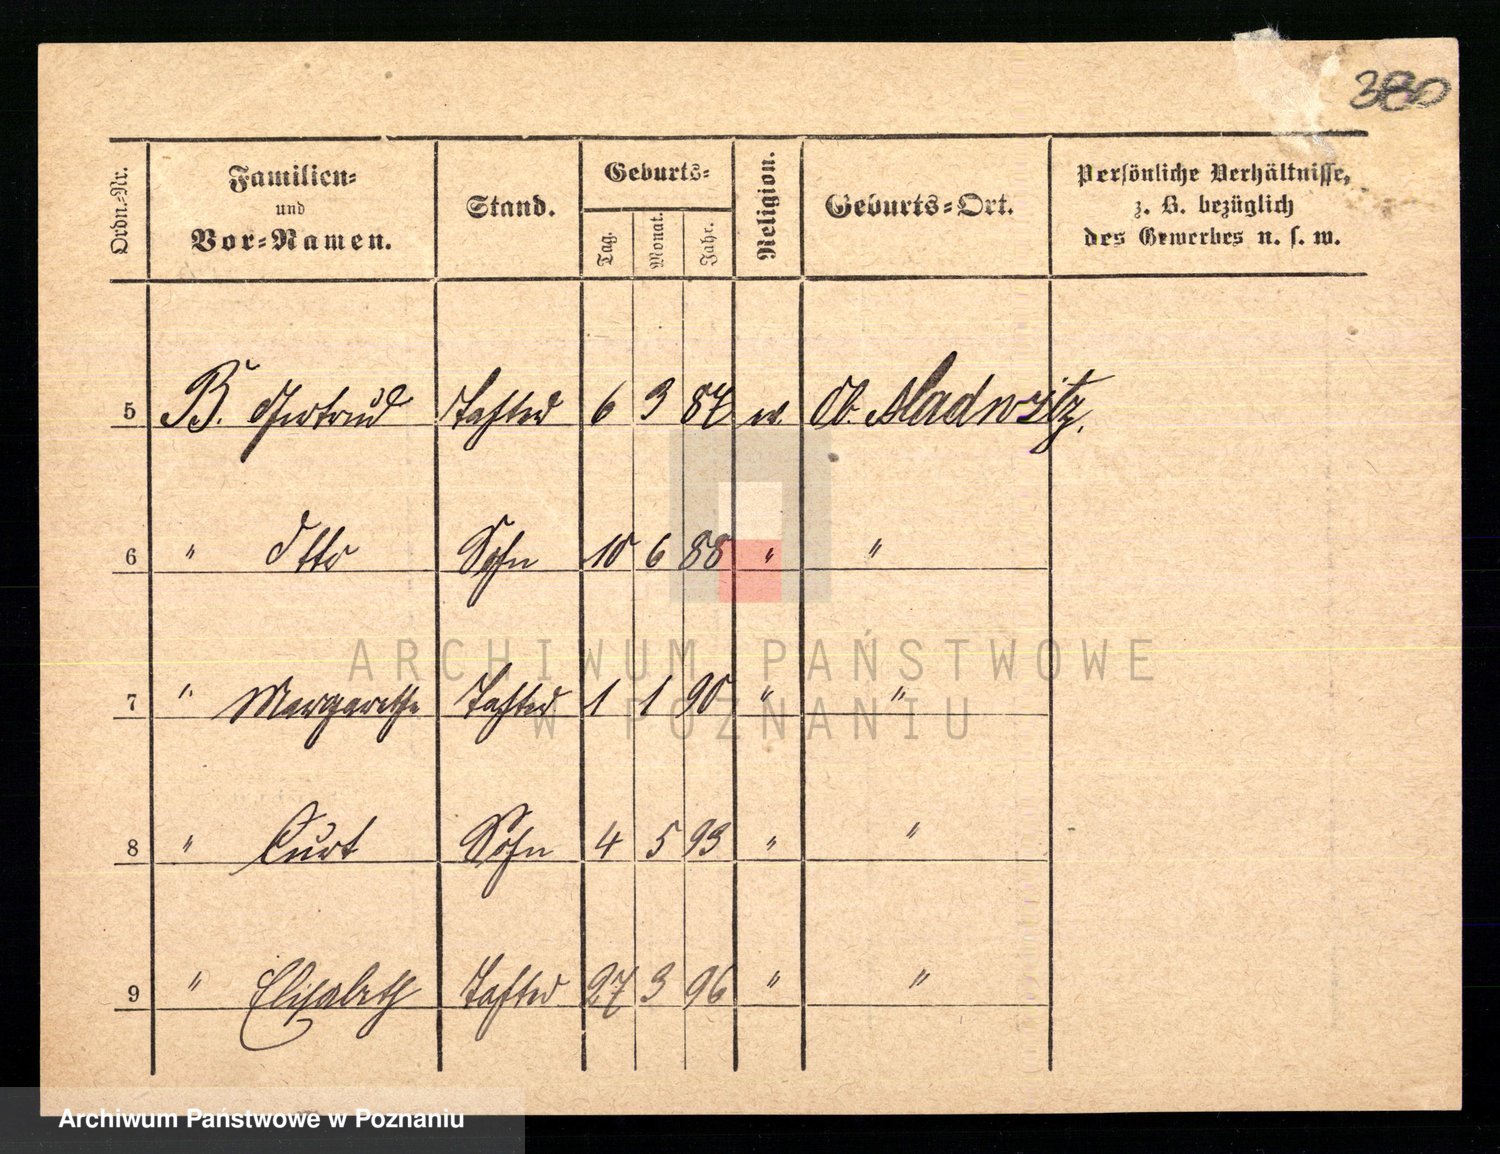 380
Ordn.-Nr. Familien- und Vor-Namen. Stand. Geburts- Tag. Monat. Jahr. Religion. Geburts-Ort. Persönliche Verhältnisse, z. B. bezüglich des Gewerbes u. s. w.
5 B. Gertrud Tochter 6 3 87 ev. Ob.
6 " Otto Sohn 10 6 88 " "
7 " Margarethe Tochter 1 1 90 " "
8 " Curt Sohn 4 5 93 " "
9 " Elisabeth Tochter 27 3 96 " "
ARCHIWUM PAŃSTWOWE
W POZNANIU
Archiwum Państwowe w Poznaniu